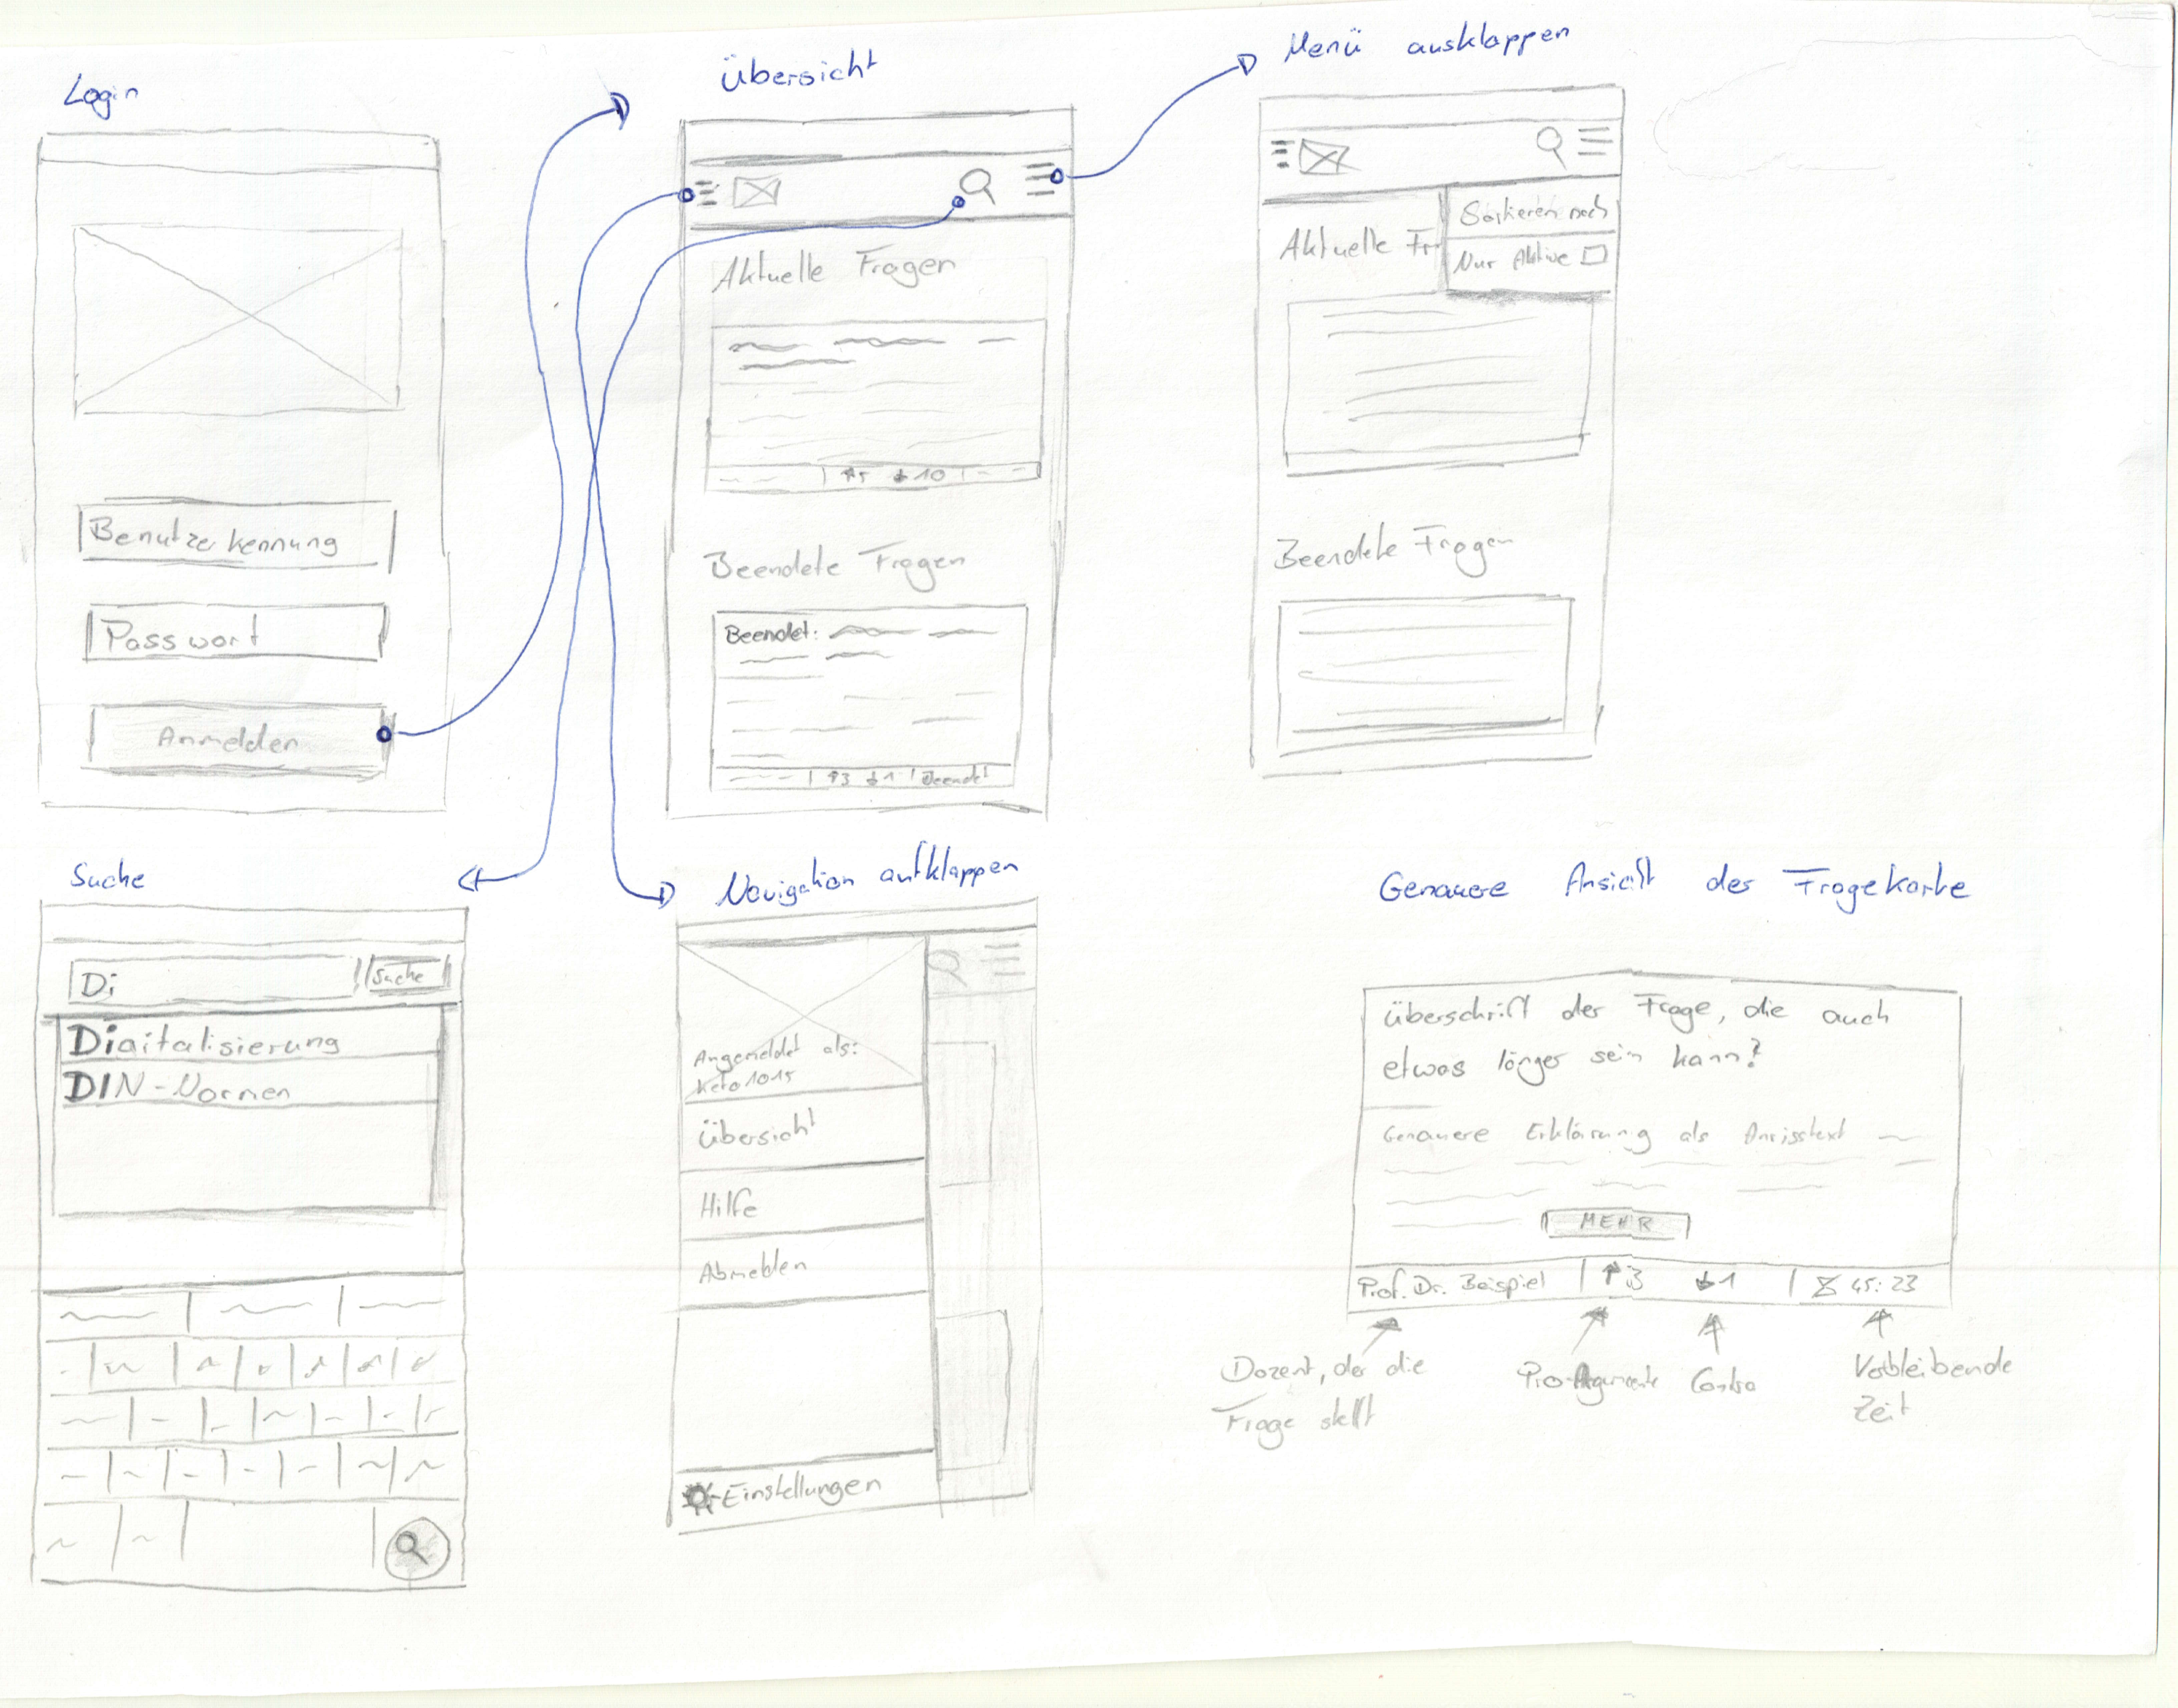 Login
Benutzerkennung
Passwort
Anmelden
Übersicht
Aktuelle Fragen
10
Beendete Fragen
Beendet:
↑3 ↓1 Beendet
Menü ausklappen
Sortieren nach
Aktuelle Fr
Nur Aktive
Beendete Fragen
Suche
Di
Suche
Digitalisierung
DIN-Normen
Navigation aufklappen
Angemeldet als:
keto1015
Übersicht
Hilfe
Abmelden
Einstellungen
Genauere Ansicht der Fragekarte
Überschrift der Frage, die auch
etwas länger sein kann?
Genauere Erklärung als Anrisstext
MEHR
Prof. Dr. Beispiel ↑3 ↓1 45:23
Dozent, der die
Frage stellt
Pro-Argumente
Contra
Verbleibende
Zeit